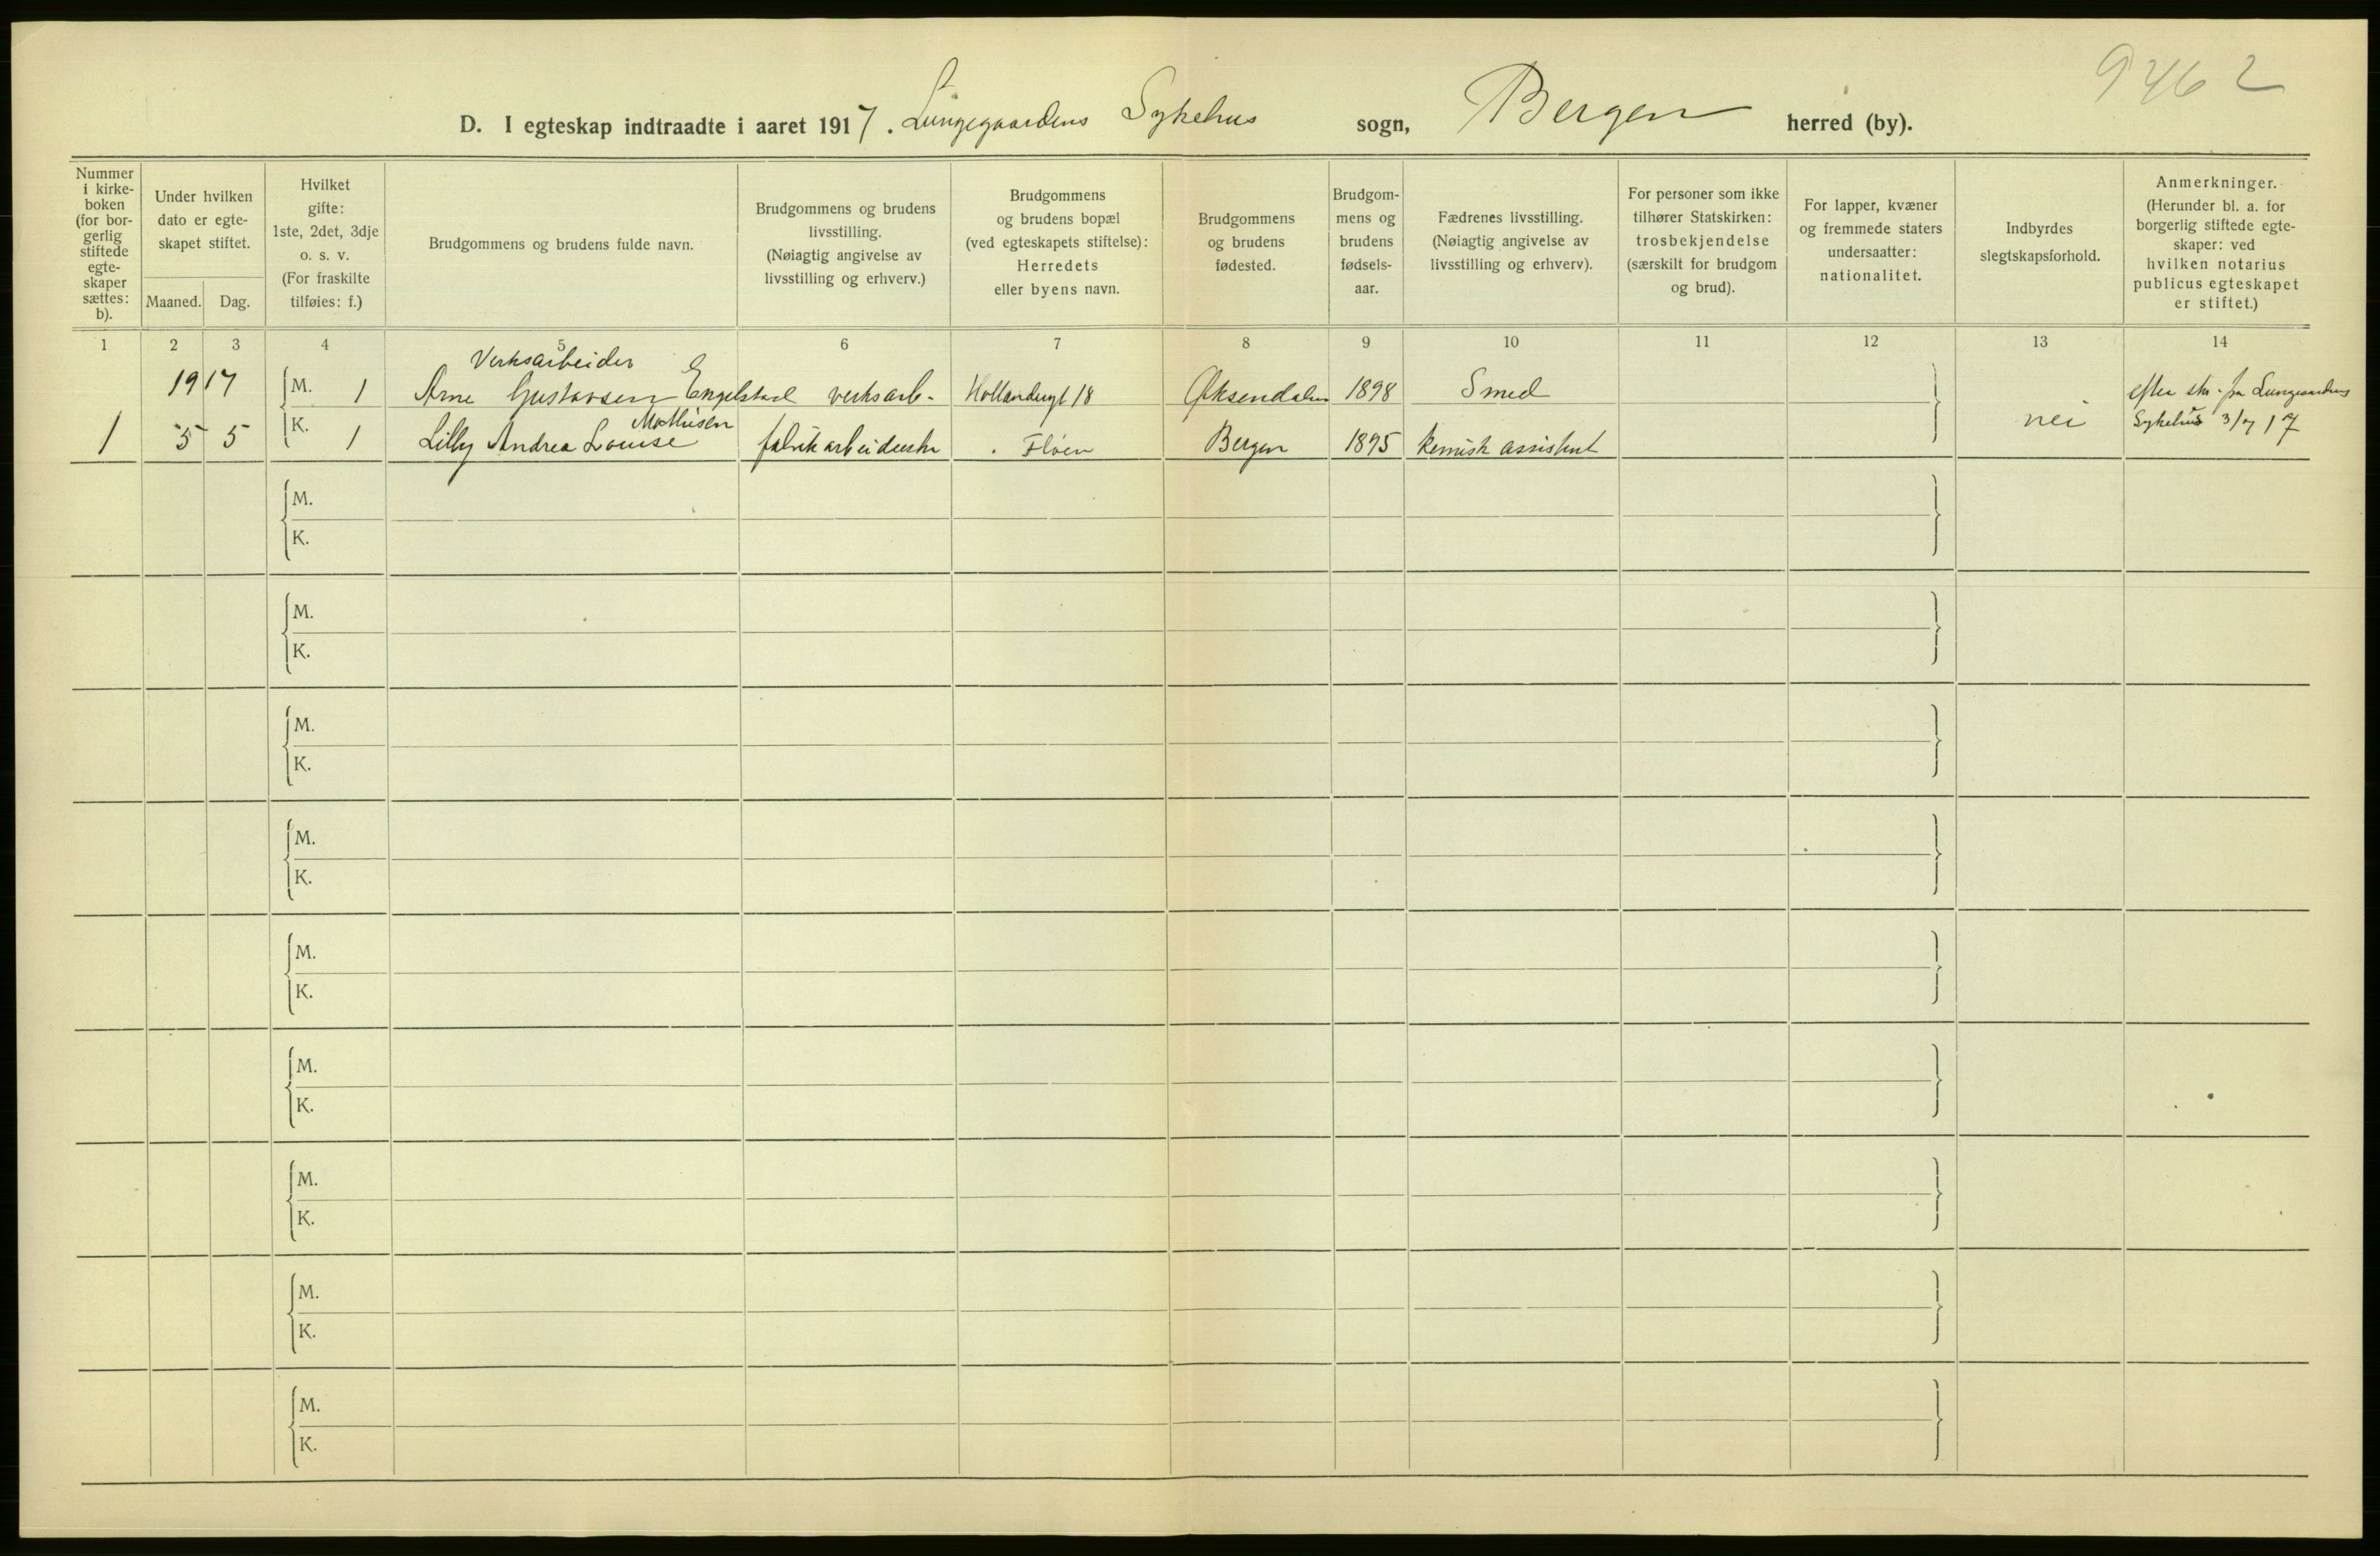 9462
D. I egteskap indtraadte i aaret 1917. Lungegaardens Sykehus sogn, Bergen herred (by).
Nummer i kirke- boken (for bor- gerlig stiftede egte- skaper sættes: b).
Under hvilken dato er egte- skapet stiftet.
Maaned. Dag.
Hvilket gifte: 1ste, 2det, 3dje o. s. v. (For fraskilte tilføies: f.)
Brudgommens og brudens fulde navn.
Brudgommens og brudens livsstilling. (Nøiagtig angivelse av livsstilling og erhverv.)
Brudgommens og brudens bopæl (ved egteskapets stiftelse): Herredets eller byens navn.
Brudgommens og brudens fødested.
Brudgom- mens og brudens fødsels- aar.
Fædrenes livsstilling. (Nøiagtig angivelse av livsstilling og erhverv).
For personer som ikke tilhører Statskirken: trosbekjendelse (særskilt for brudgom og brud).
For lapper, kvæner og fremmede staters undersaatter: nationalitet.
Indbyrdes slegtskapsforhold.
Anmerkninger. (Herunder bl. a. for borgerlig stiftede egte- skaper: ved hvilken notarius publicus egteskapet er stiftet.)
1 2 3 4 5 6 7 8 9 10 11 12 13 14
Verksarbeider
1917 M. 1 Arne Gustavsen Engelstad verksarb. Hollendergt 18 Øksendalen 1898 Smed efter fra Lungegaardens
Mathisen
1 5 5 K. 1 Lilly Andrea Louise fabrikarbeiderske Fløen Bergen 1895 kemisk assistent nei Sykehus 3/7 17
M.
K.
M.
K.
M.
K.
M.
K.
M.
K.
M.
K.
M.
K.
M.
K.
M.
K.